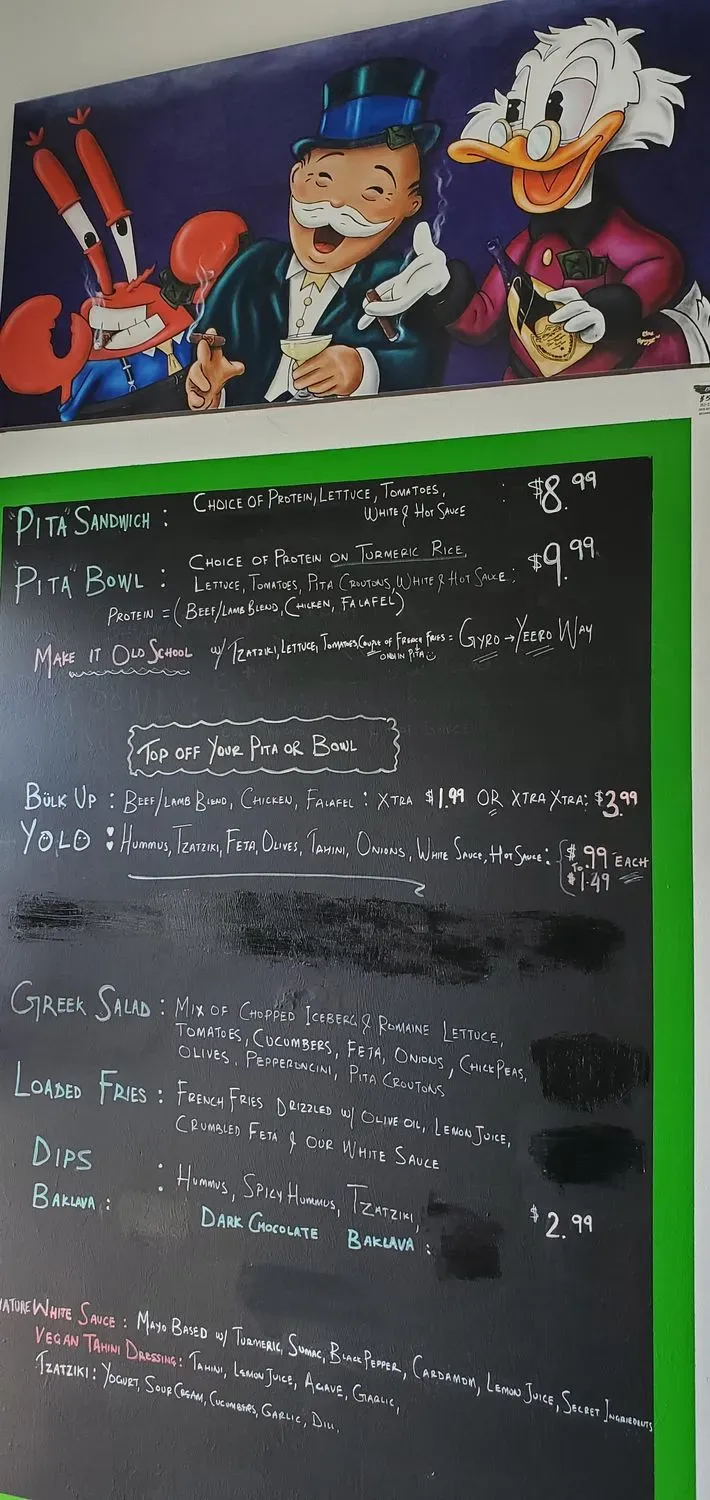 "PITA" SANDWICH : CHOICE OF PROTEIN, LETTUCE, TOMATOES, : $8.99
WHITE & HOT SAUCE
"PITA" BOWL : CHOICE OF PROTEIN ON TURMERIC RICE, $9.99
LETTUCE, TOMATOES, PITA CROUTONS, WHITE & HOT SAUCE:
PROTEIN = (BEEF/LAMB BLEND, CHICKEN, FALAFEL)
MAKE IT OLD SCHOOL W/ TZATZIKI, LETTUCE, TOMATOES, COUPLE OF FRENCH FRIES = GYRO → YEERO WAY
ON/IN PITA
TOP OFF YOUR PITA OR BOWL
BULK UP : BEEF/LAMB BLEND, CHICKEN, FALAFEL : XTRA $1.99 OR XTRA XTRA: $3.99
YOLO : HUMMUS, TZATZIKI, FETA, OLIVES, TAHINI, ONIONS, WHITE SAUCE, HOT SAUCE: $.99 EACH
TO
$1.49
GREEK SALAD : MIX OF CHOPPED ICEBERG & ROMAINE LETTUCE,
TOMATOES, CUCUMBERS, FETA, ONIONS, CHICKPEAS,
OLIVES, PEPPERONCINI, PITA CROUTONS
LOADED FRIES : FRENCH FRIES DRIZZLED W/ OLIVE OIL, LEMON JUICE,
CRUMBLED FETA & OUR WHITE SAUCE
DIPS : HUMMUS, SPICY HUMMUS, TZATZIKI,
BAKLAVA : DARK CHOCOLATE BAKLAVA : $2.99
ATURE WHITE SAUCE : MAYO BASED W/ TURMERIC, SUMAC, BLACK PEPPER, CARDAMOM, LEMON JUICE, SECRET INGREDIENTS
VEGAN TAHINI DRESSING: TAHINI, LEMON JUICE, AGAVE, GARLIC,
TZATZIKI : YOGURT, SOUR CREAM, CUCUMBERS, GARLIC, DILL.